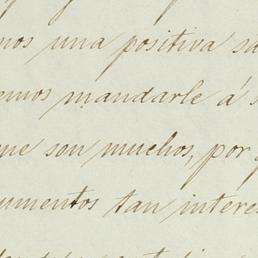 mos una positiva sa
emos mandarle á s
que son muchos, por
umentos tan interes